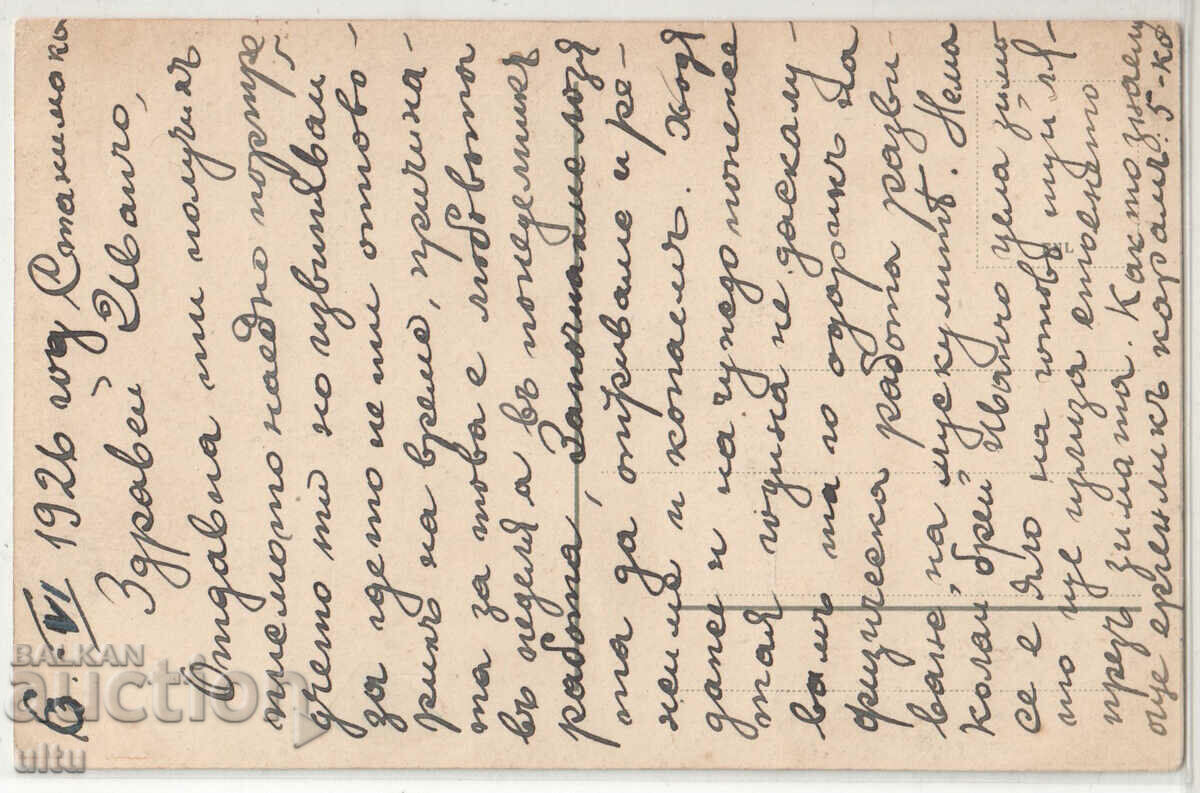 6.-VI 1926 год Станимака
Здравей Иванчо,
Отдавна ти получихъ
писмото наедно портре
тчето ти но извинявай
за гдето не ти отгово-
рихъ на време, причина-
та за това е любовьта
въ неделя а въ понеделникъ
работа, Започнахме лозя
та да откриваме и ре-
неме и копаемъ. Ходя
даже и на чуждо понеже
тая година не даскалу
вамъ та го ударихъ на
физическа работа разви-
ване на мускулитѣ. Нема
колай брей Иванчо цела зима
се е яло на готово туй ля-
то ще излиза стоенято
презъ зимата. Както знаешъ
още ергенликъ карамъ. 5-ко
BALKAN
auction
ultu